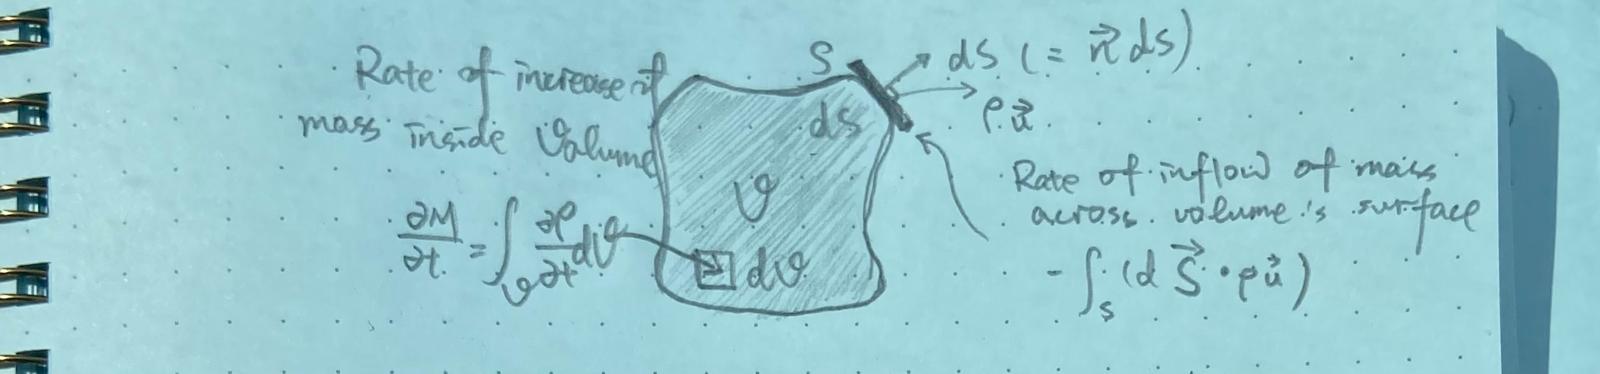 Rate of increase of
mass inside Volume
∂M/∂t = ∫_𝒱 ∂ρ/∂t d𝒱
S
dS
𝒱
d𝒱
dS (= n⃗ dS)
ρu⃗
Rate of inflow of mass
across volume's surface
- ∫_S (dS⃗ · ρu⃗)